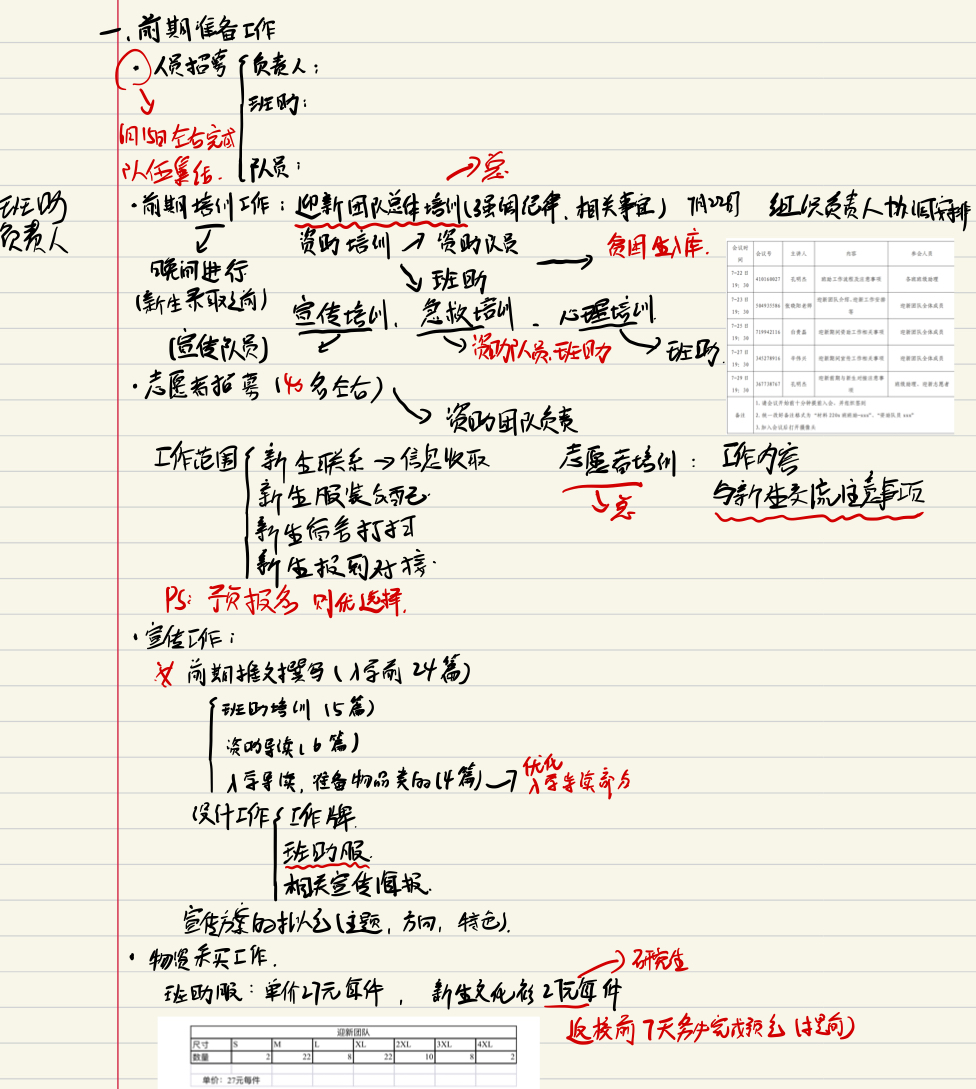 一.前期准备工作
·人员招募 负责人：
班助：
队员：
6月15日左右完成
队伍集结.
→总
班助
负责人
·前期培训工作：迎新团队总体培训(强调纪律、相关事宜) 7月22日 组织负责人协调安排
晚间进行
(新生录取之前)
资助培训 → 资助队员 → 贫困生入库.
班助
宣传培训、急救培训、心理培训
(宣传队员)
资助队员、班助
班助.
会议时间 会议号 主讲人 内容 参会人员
7-22日 19：30 410160027 孔明杰 班助工作流程及注意事项 各班班级助理
7-23日 19：30 迎新团队介绍、迎新工作安排等 迎新团队全体成员
7-25日 19：30 719942116 白青蓝 迎新期间资助工作相关事项 迎新团队全体成员
7-27日 19：30 345278916 迎新期间宣传工作相关事项 迎新团队全体成员
7-29日 19：30 367738767 孔明杰 迎新前期与新生对接注意事项 班级助理、迎新志愿者
备注 1.请会议开始前十分钟提前入会，并按时签到
3.加入会议后打开摄像头
·志愿者招募(40名左右)
→ 资助团队负责
工作范围 新生联系→信息收取
新生服装分配.
新生宿舍打扫
新生报到对接.
志愿者培训： 工作内容
与新生交流注意事项
→总
PS: 预报名 则优选择.
·宣传工作：
前期推文撰写(入学前24篇)
班助培训15篇)
资助导读(6篇)
入学导读，准备物品类的(4篇)→优化
入学导读部分
设计工作 工作牌.
班助服.
相关宣传海报.
宣传方案的拟定(主题，方向，特色).
·物资采买工作.
班助服：单价27元每件， 新生文化衫27元每件
→研究生
返校前7天多少完成预定(提前)
迎新团队
尺寸 S M L XL 2XL 3XL 4XL
数量 2 22 8 22 10 8 2
单价：27元每件